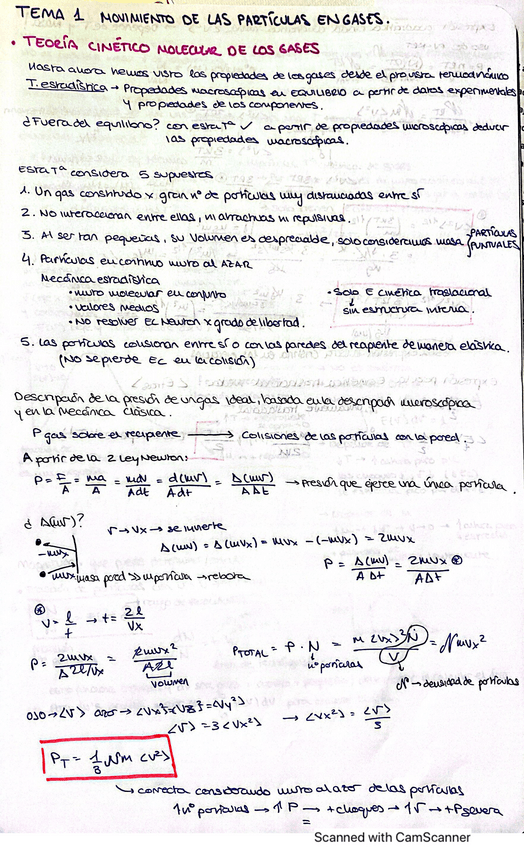 TEMA 1 MOVIMIENTO DE LAS PARTÍCULAS EN GASES.
• TEORÍA CINÉTICO MOLECULAR DE LOS GASES
Hasta ahora hemos visto las propiedades de los gases desde el pto vista termodinámico
T. estadística → Propiedades macroscópicas en EQUILIBRIO a partir de datos experimentales
y propiedades de los componentes.
¿Fuera del equilibrio? con esta Tª ✓ a partir de propiedades microscópicas deducir
las propiedades macroscópicas.
Esta Tª considera 5 supuestos
1. Un gas constituido x gran nº de partículas muy distanciadas entre sí
2. No interaccionan entre ellas, ni atractivas ni repulsivas.
3. Al ser tan pequeñas, su volumen es despreciable, solo consideramos masa } PARTÍCULAS PUNTUALES
4. Partículas en continuo mvto al AZAR
Mecánica estadística
• mvto molecular en conjunto
• valores medios
• No resolver Ec Newton x grado de libertad.
• Solo E cinética traslacional
↓
sin estructura interna.
5. Las partículas colisionan entre sí o con las paredes del recipente de manera elástica.
(No se pierde Ec en la colisión)
Descripción de la presión de un gas ideal, basada en la descripción microscópica
y en la Mecánica Clásica.
P gas sobre el recipiente → Colisiones de las partículas con la pared.
A partir de la 2 Ley Newton:
P = F/A = ma/A = mdv/Adt = d(mv)/Adt = Δ(mv)/AΔt → Presión que ejerce una única partícula.
¿ Δ(mv)?
v → vx → se invierte
Δ(mv) = Δ(mvx) = mvx - (-mvx) = 2mvx
-mvx
mvx masa pared >> m partícula → rebota
P = Δ(mv)/AΔt = 2mvx/AΔt
v = l/t → t = 2l/vx
P = 2mvx/A2l/vx = 2mvx²/A2l
volumen
PTOTAL = P · N = m<vx>²N/V = 𝒩mvx²
nº partículas
𝒩 → densidad de partículas
ojo → <v> azar → <vx²> = <vz²> = <vy²>
<v> = 3<vx²> → <vx²> = <v>/3
PT = 1/3 𝒩m <v²>
↳ correcta considerando mvto al azar de las partículas
↑ nº partículas → ↑ P → + choques → ↑ v → + P severa
=
Scanned with CamScanner